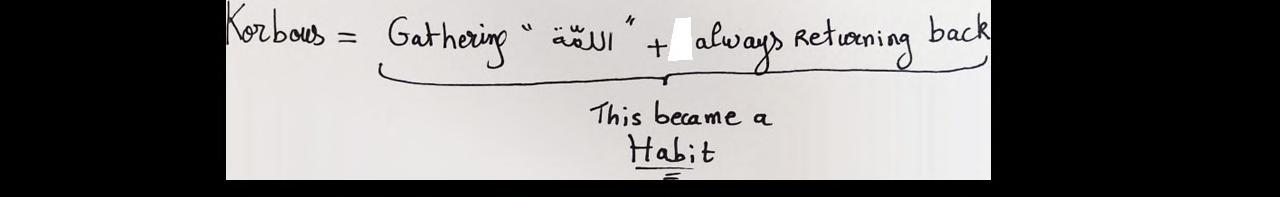 Korbous = Gathering " اللمّة " + always Returning back
This became a
Habit